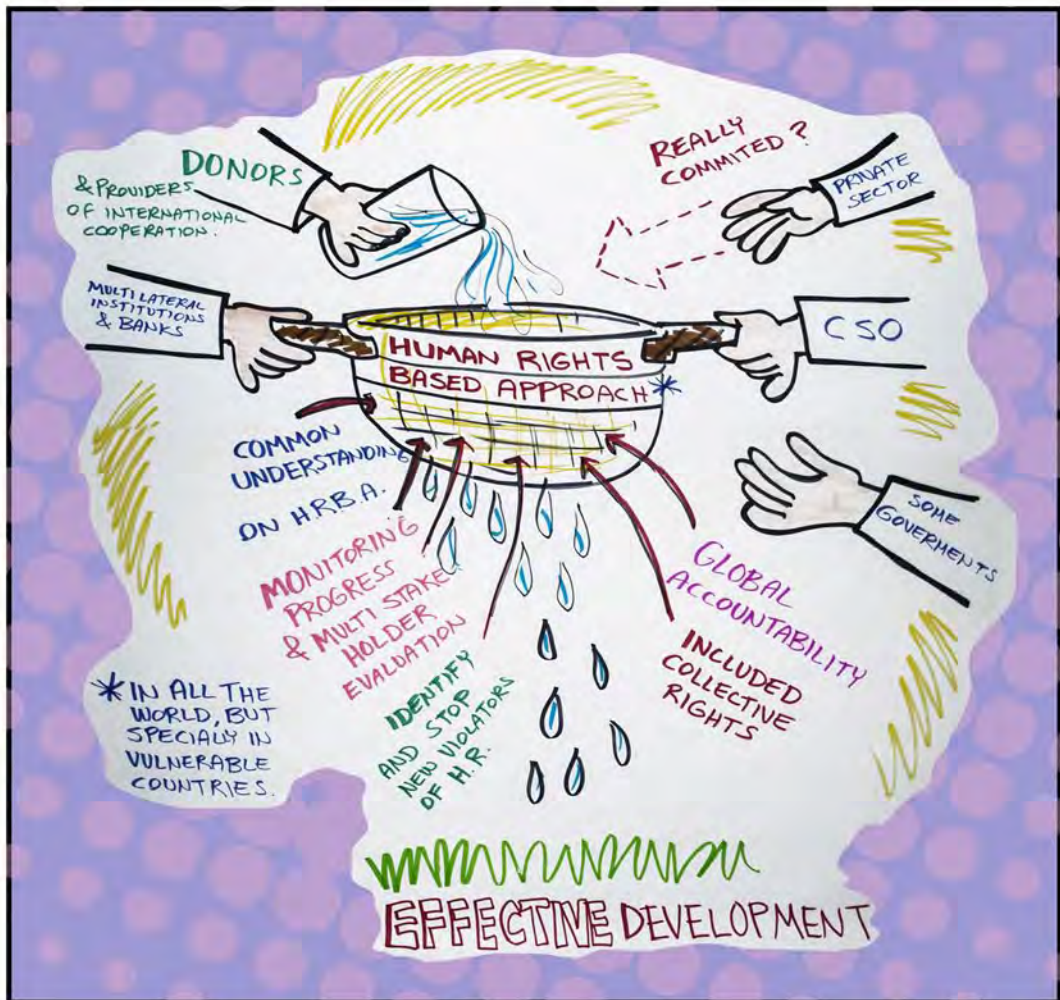 DONORS
& PROVIDERS
OF INTERNATIONAL
COOPERATION.
REALLY
COMMITED ?
PRIVATE
SECTOR
MULTILATERAL
INSTITUTIONS
& BANKS
CSO
HUMAN RIGHTS
BASED APPROACH*
COMMON
UNDERSTANDING
ON H.R.B.A.
SOME
GOVERMENTS
MONITORING
PROGRESS
& MULTI STAKE
HOLDER
EVALUATION
GLOBAL
ACCOUNTABILITY
IDENTIFY
AND STOP
NEW VIOLATORS
OF H.R.
INCLUDED
COLLECTIVE
RIGHTS
* IN ALL THE
WORLD, BUT
SPECIALLY IN
VULNERABLE
COUNTRIES.
EFFECTIVE DEVELOPMENT